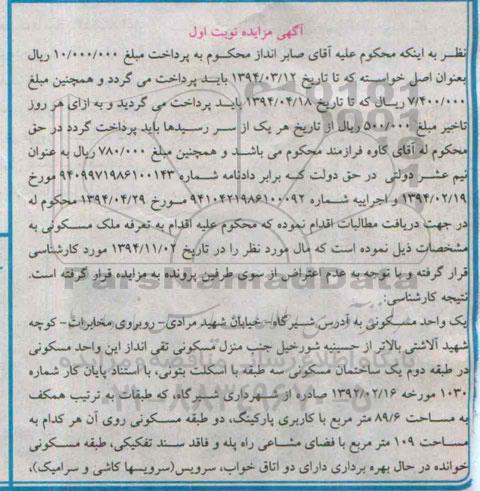 آگهی مزایده نوبت اول
نظر به اینکه محکوم علیه آقای صابر انداز محکوم به پرداخت مبلغ ۱۰/۰۰۰/۰۰۰ ریال
بعنوان اصل خواسته که تا تاریخ ۱۳۹۴/۰۳/۱۲ باید پرداخت می گردد و همچنین مبلغ
۷/۴۰۰/۰۰۰ ریال که تا تاریخ ۱۳۹۴/۰۴/۱۸ باید پرداخت می گردید و به ازای هر روز
تاخیر مبلغ ۵۰۰/۰۰۰ ریال از تاریخ هر یک از سر رسیدها باید پرداخت گردد در حق
محکوم له آقای کاوه فرازمند محکوم می باشد و همچنین مبلغ ۷۸۰/۰۰۰ ریال به عنوان
نیم عشر دولتی در حق دولت که برابر دادنامه شماره ۹۴۰۹۹۷۱۹۸۶۱۰۰۱۴۳ مورخ
۱۳۹۴/۰۲/۱۹ و اجراییه شماره ۹۴۱۰۴۲۱۹۸۶۱۰۰۰۹۲ مورخ ۱۳۹۴/۰۴/۲۹ محکوم له
در جهت دریافت مطالبات اقدام نموده که محکوم علیه اقدام به تعرفه ملک مسکونی به
مشخصات ذیل نموده است که مال مورد نظر را در تاریخ ۱۳۹۴/۱۱/۰۲ مورد کارشناسی
قرار گرفته و با توجه به عدم اعتراض از سوی طرفین پرونده به مزایده قرار گرفته است.
نتیجه کارشناسی:
یک واحد مسکونی به آدرس شیرگاه- خیابان شهید مرادی- روبروی مخابرات- کوچه
شهید آلاشتی بالاتر از حسینیه شورخیل جنب منزل مسکونی تقی انداز این واحد مسکونی
در طبقه دوم یک ساختمان مسکونی سه طبقه با اسکلت بتونی، با استناد پایان کار شماره
۱۰۳۰ مورخه ۱۳۹۲/۰۲/۱۶ صادره از شهرداری شیرگاه، که طبقات به ترتیب همکف
به مساحت ۸۹/۶ متر مربع با کاربری پارکینگ، دو طبقه مسکونی روی آن هر کدام به
مساحت ۱۰۹ متر مربع با فضای مشاعی راه پله و فاقد سند تفکیکی، طبقه مسکونی
خوانده در حال بهره برداری دارای دو اتاق خواب، سرویس(سرویسها کاشی و سرامیک)،
ParsNamadData
پایگاه اطلاع رسانی مناقصه و مزایده